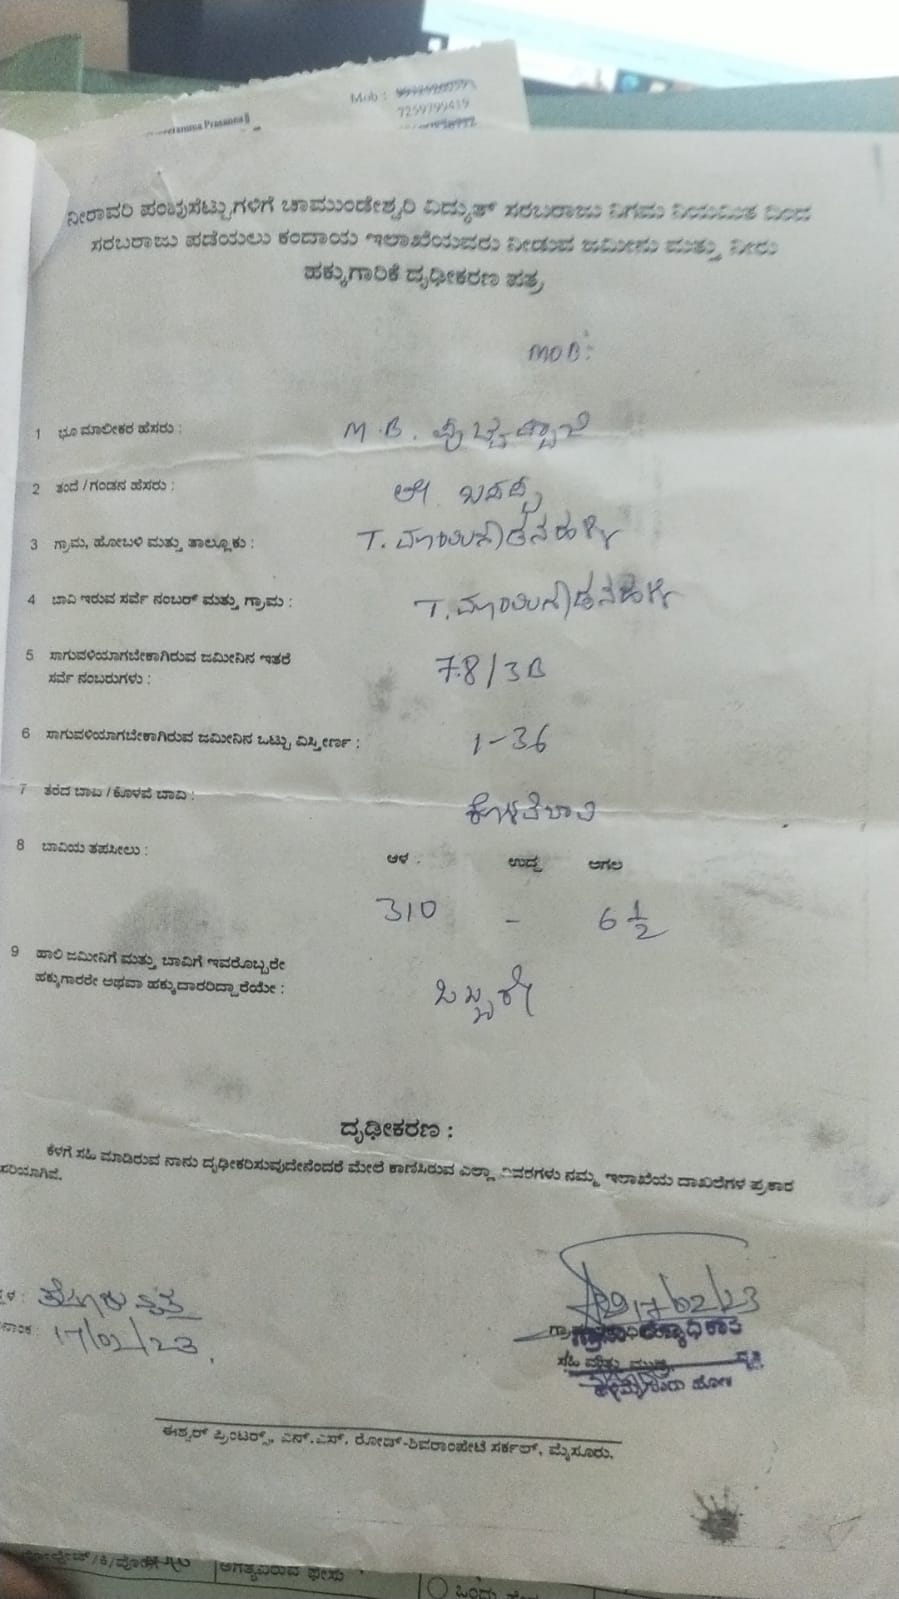 Mob :
7259799419
Prasanna
ನೀರಾವರಿ ಪಂಪುಸೆಟ್ಟುಗಳಿಗೆ ಚಾಮುಂಡೇಶ್ವರಿ ವಿದ್ಯುತ್ ಸರಬರಾಜು ನಿಗಮ ನಿಯಮಿತ ದಿಂದ
ಸರಬರಾಜು ಪಡೆಯಲು ಕಂದಾಯ ಇಲಾಖೆಯವರು ನೀಡುವ ಜಮೀನು ಮತ್ತು ನೀರು
ಹಕ್ಕುಗಾರಿಕೆ ದೃಢೀಕರಣ ಪತ್ರ
MOB:
1 ಭೂ ಮಾಲೀಕರ ಹೆಸರು : M.B.
2 ತಂದೆ / ಗಂಡನ ಹೆಸರು : ಬಸಪ್ಪ
3 ಗ್ರಾಮ, ಹೋಬಳಿ ಮತ್ತು ತಾಲ್ಲೂಕು : T. ಮಾಯಿಗೌಡನಹಳ್ಳಿ
4 ಬಾವಿ ಇರುವ ಸರ್ವೆ ನಂಬರ್ ಮತ್ತು ಗ್ರಾಮ : T. ಮಾಯಿಗೌಡನಹಳ್ಳಿ
5 ಸಾಗುವಳಿಯಾಗಬೇಕಾಗಿರುವ ಜಮೀನಿನ ಇತರೆ
ಸರ್ವೆ ನಂಬರುಗಳು : 78/3B
6 ಸಾಗುವಳಿಯಾಗಬೇಕಾಗಿರುವ ಜಮೀನಿನ ಒಟ್ಟು ವಿಸ್ತೀರ್ಣ : 1-36
7 ತೆರೆದ ಬಾವಿ / ಕೊಳವೆ ಬಾವಿ : ಕೊಳವೆಬಾವಿ
8 ಬಾವಿಯ ತಪಸೀಲು : ಆಳ . ಉದ್ದ ಅಗಲ
310 - 6 1/2
9 ಹಾಲಿ ಜಮೀನಿಗೆ ಮತ್ತು ಬಾವಿಗೆ ಇವರೊಬ್ಬರೇ
ಹಕ್ಕುಗಾರರೇ ಅಥವಾ ಹಕ್ಕುದಾರರಿದ್ದಾರೆಯೇ : ಒಬ್ಬರೇ
ದೃಢೀಕರಣ :
ಕೆಳಗೆ ಸಹಿ ಮಾಡಿರುವ ನಾನು ದೃಢೀಕರಿಸುವುದೇನೆಂದರೆ ಮೇಲೆ ಕಾಣಿಸಿರುವ ಎಲ್ಲಾ ವಿವರಗಳು ನಮ್ಮ ಇಲಾಖೆಯ ದಾಖಲೆಗಳ ಪ್ರಕಾರ
ಸರಿಯಾಗಿವೆ.
17/02/23
17/02/23
ಸಹಿ ಮತ್ತು ಮುದ್ರೆ
ಈಶ್ವರ್ ಪ್ರಿಂಟರ್ಸ್, ಎನ್.ಎಸ್. ರೋಡ್-ಶಿವರಾಂಪೇಟೆ ಸರ್ಕಲ್, ಮೈಸೂರು.
ಅಗತ್ಯವಿರುವ ಫೇಸು
ಒಂದು